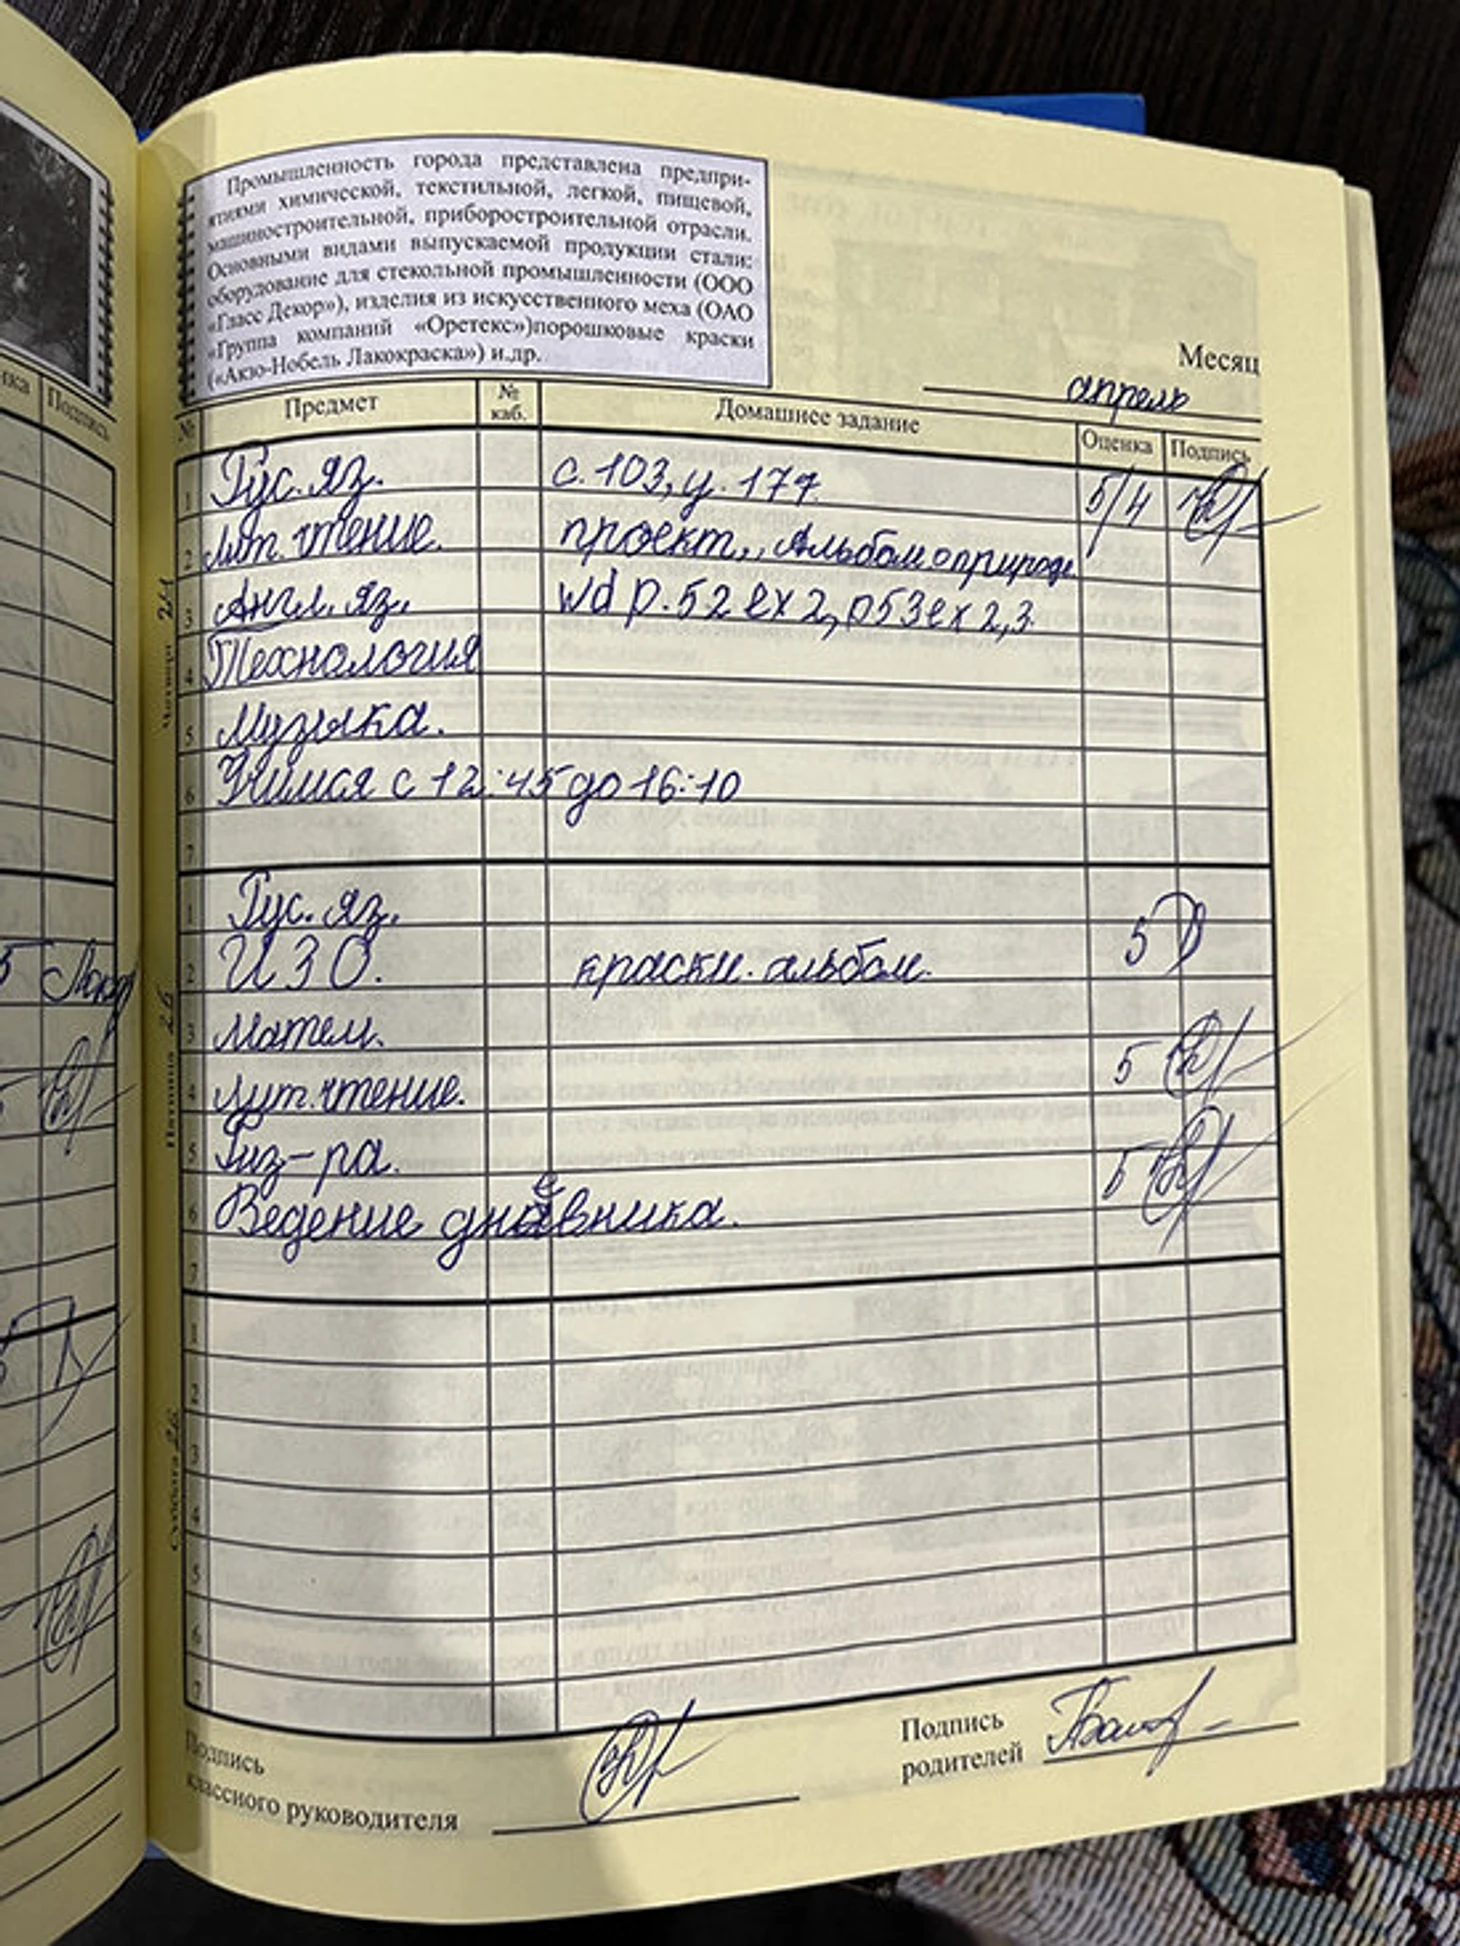 Промышленность города представлена предпри-
ятиями химической, текстильной, легкой, пищевой,
машиностроительной, приборостроительной отрасли.
Основными видами выпускаемой продукции стали:
оборудование для стекольной промышленности (ООО
«Гласс Декор»), изделия из искусственного меха (ОАО
«Группа компаний «Оретекс»)порошковые краски
(«Акзо-Нобель Лакокраска») и.др.
Месяц апрель
ика Подпись
№ Предмет № каб. Домашнее задание Оценка Подпись
Четверг
1 Рус. яз. с. 103, у. 177 5/4
2 Лит. чтение. проект „Альбом о природе
3 Англ. яз. wd p. 52 ex 2, p53 ex 2,3.
4 Технология
5 Музыка.
6 Учимся с 12:45 до 16:10
7
Пятница
1 Рус. яз.
2 ИЗО. краски. альбом. 5
3 Матем.
4 Лит. чтение. 5
5 Физ-ра.
6 Ведение дневника. 5
7
Суббота
1
2
3
4
5
6
7
Подпись
классного руководителя
Подпись
родителей